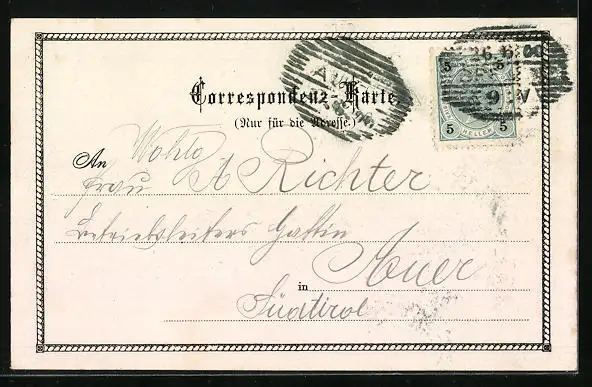 Correspondenz-Karte.
(Nur für die Adresse.)
5 5
26 6 00
5 HELLER 5
An Wohlg
Frau A Richter
Betriebsleiters Gattin
in Auer
Südtirol